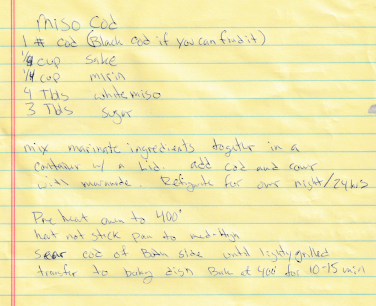 Miso Cod
1 # cod (Black cod if you can find it)
1/4 cup sake
1/4 cup mirin
4 Tbls white miso
3 Tbls sugar
mix marinate ingredients together in a
container w/ a lid. add cod and cover
with marinade. Refigrate for over night/24 hrs
Pre heat oven to 400°
heat not stick pan to med-high
sear cod of Both side until lightly grilled
transfer to baking dish Bake at 400° for 10-15 min